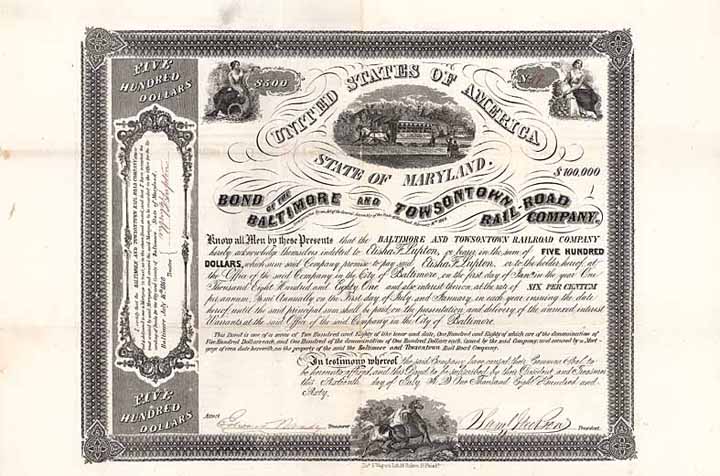 FIVE
HUNDRED
DOLLARS
$500
No.
UNITED STATES OF AMERICA
STATE OF MARYLAND.
$100,000
BOND OF THE
BALTIMORE AND TOWSONTOWN
RAIL ROAD
COMPANY.
Know all Men by these Presents that the BALTIMORE AND TOWSONTOWN RAILROAD COMPANY
hereby acknowledge themselves indebted to Elisha F. Lupton, or payee in the sum of FIVE HUNDRED
DOLLARS, which sum said Company promise to pay to Elisha F. Lupton, or to the holder hereof, at
the Office of the said Company in the City of Baltimore, on the first day of January in the year One
Thousand Eight Hundred and Eighty One and also interest thereon, at the rate of SIX PER CENTUM
per annum, Semi Annually on the First day of July, and January, in each year ensuing the date
hereof until the said principal sum shall be paid, on the presentation, and delivery of the annexed interest
Warrants at the said Office of the said Company in the City of Baltimore.
This Bond is one of a series of Two Hundred and Eighty of like tenor and date, One Hundred and Eighty of which are of the denomination of
Five Hundred Dollars each, and One Hundred of the denomination of One Hundred Dollars each, issued by the said Company, and secured by a Mort-
gage of even date herewith, on the property of the said the Baltimore and Towsontown Rail Road Company.
In testimony whereof the said Company have caused their Common Seal to
be hereunto affixed, and this Bond to be subscribed by their President, and Treasurer
this Sixteenth day of July A. D. One Thousand Eight Hundred and
Sixty.
Attest
Treasurer
President.
Baltimore July 16th 1860
Trustee
FIVE
HUNDRED
DOLLARS